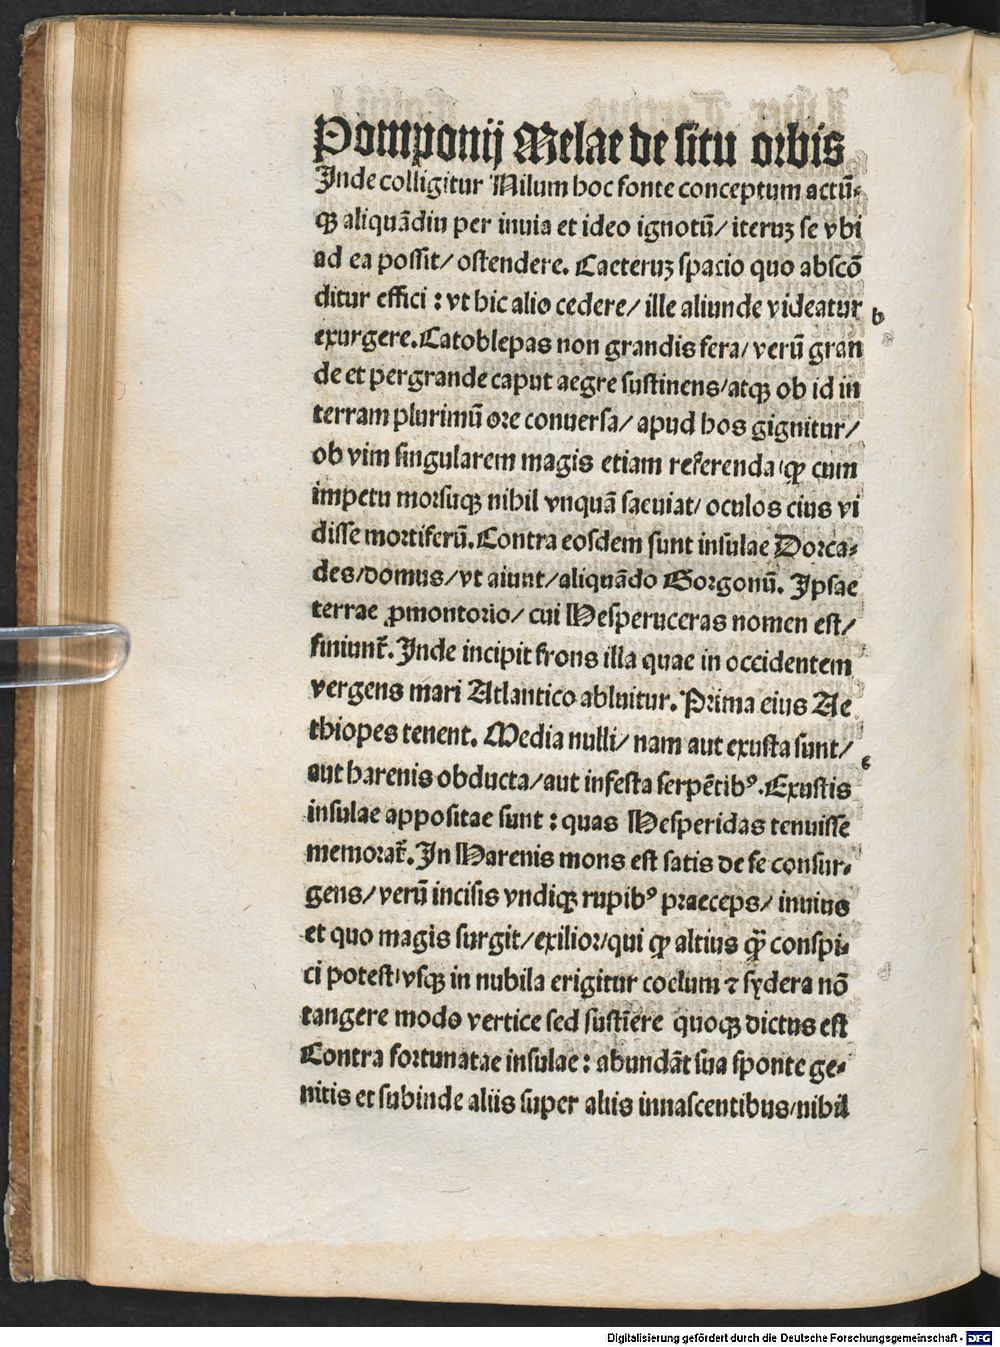 Pomponij Melae de situ orbis
Inde colligitur Nilum hoc fonte conceptum actū⸗
qꝫ aliquādiu per inuia et ideo ignotū/ iteruꝫ se vbi
ad ea possit/ ostendere. Caeteruꝫ spacio quo abscō
ditur effici : vt hic alio cedere/ ille aliunde videatur
b
exurgere. Catoblepas non grandis fera/ verū gran
de et pergrande caput aegre sustinens/ atqꝫ ob id in
terram plurimū ore conuersa/ apud hos gignitur/
ob vim singularem magis etiam referenda/ ꝙ cum
impetu morsuqꝫ nihil vnquā saeuiat/ oculos eius vi
disse mortiferū. Contra eosdem sunt insulae Dorca⸗
des/ domus/ vt aiunt/ aliquādo Gorgonū. Ipsae
terrae ꝓmontorio/ cui Hesperuceras nomen est/
finiunt᷑. Inde incipit frons illa quae in occidentem
vergens mari Atlantico abluitur. Prima eius Ae
thiopes tenent. Media nulli/ nam aut exusta sunt/
c
aut harenis obducta/ aut infesta serpētibꝰ. Exustis
insulae appositae sunt : quas Hesperidas tenuisse
memorat᷑. In Harenis mons est satis de se consur⸗
gens/ verū incisis vndiqꝫ rupibꝰ praeceps/ inuius
et quo magis surgit/ exilior/ qui ꝙ altius ꝙ̄ conspi⸗
ci potest/ vsqꝫ in nubila erigitur coelum ⁊ sydera nō
tangere modo vertice sed sustīere quoqꝫ dictus est
Contra fortunatae insulae : abundāt sua sponte ge⸗
nitis et subinde aliis super aliis innascentibus/ nihil
Digitalisierung gefördert durch die Deutsche Forschungsgemeinschaft - DFG